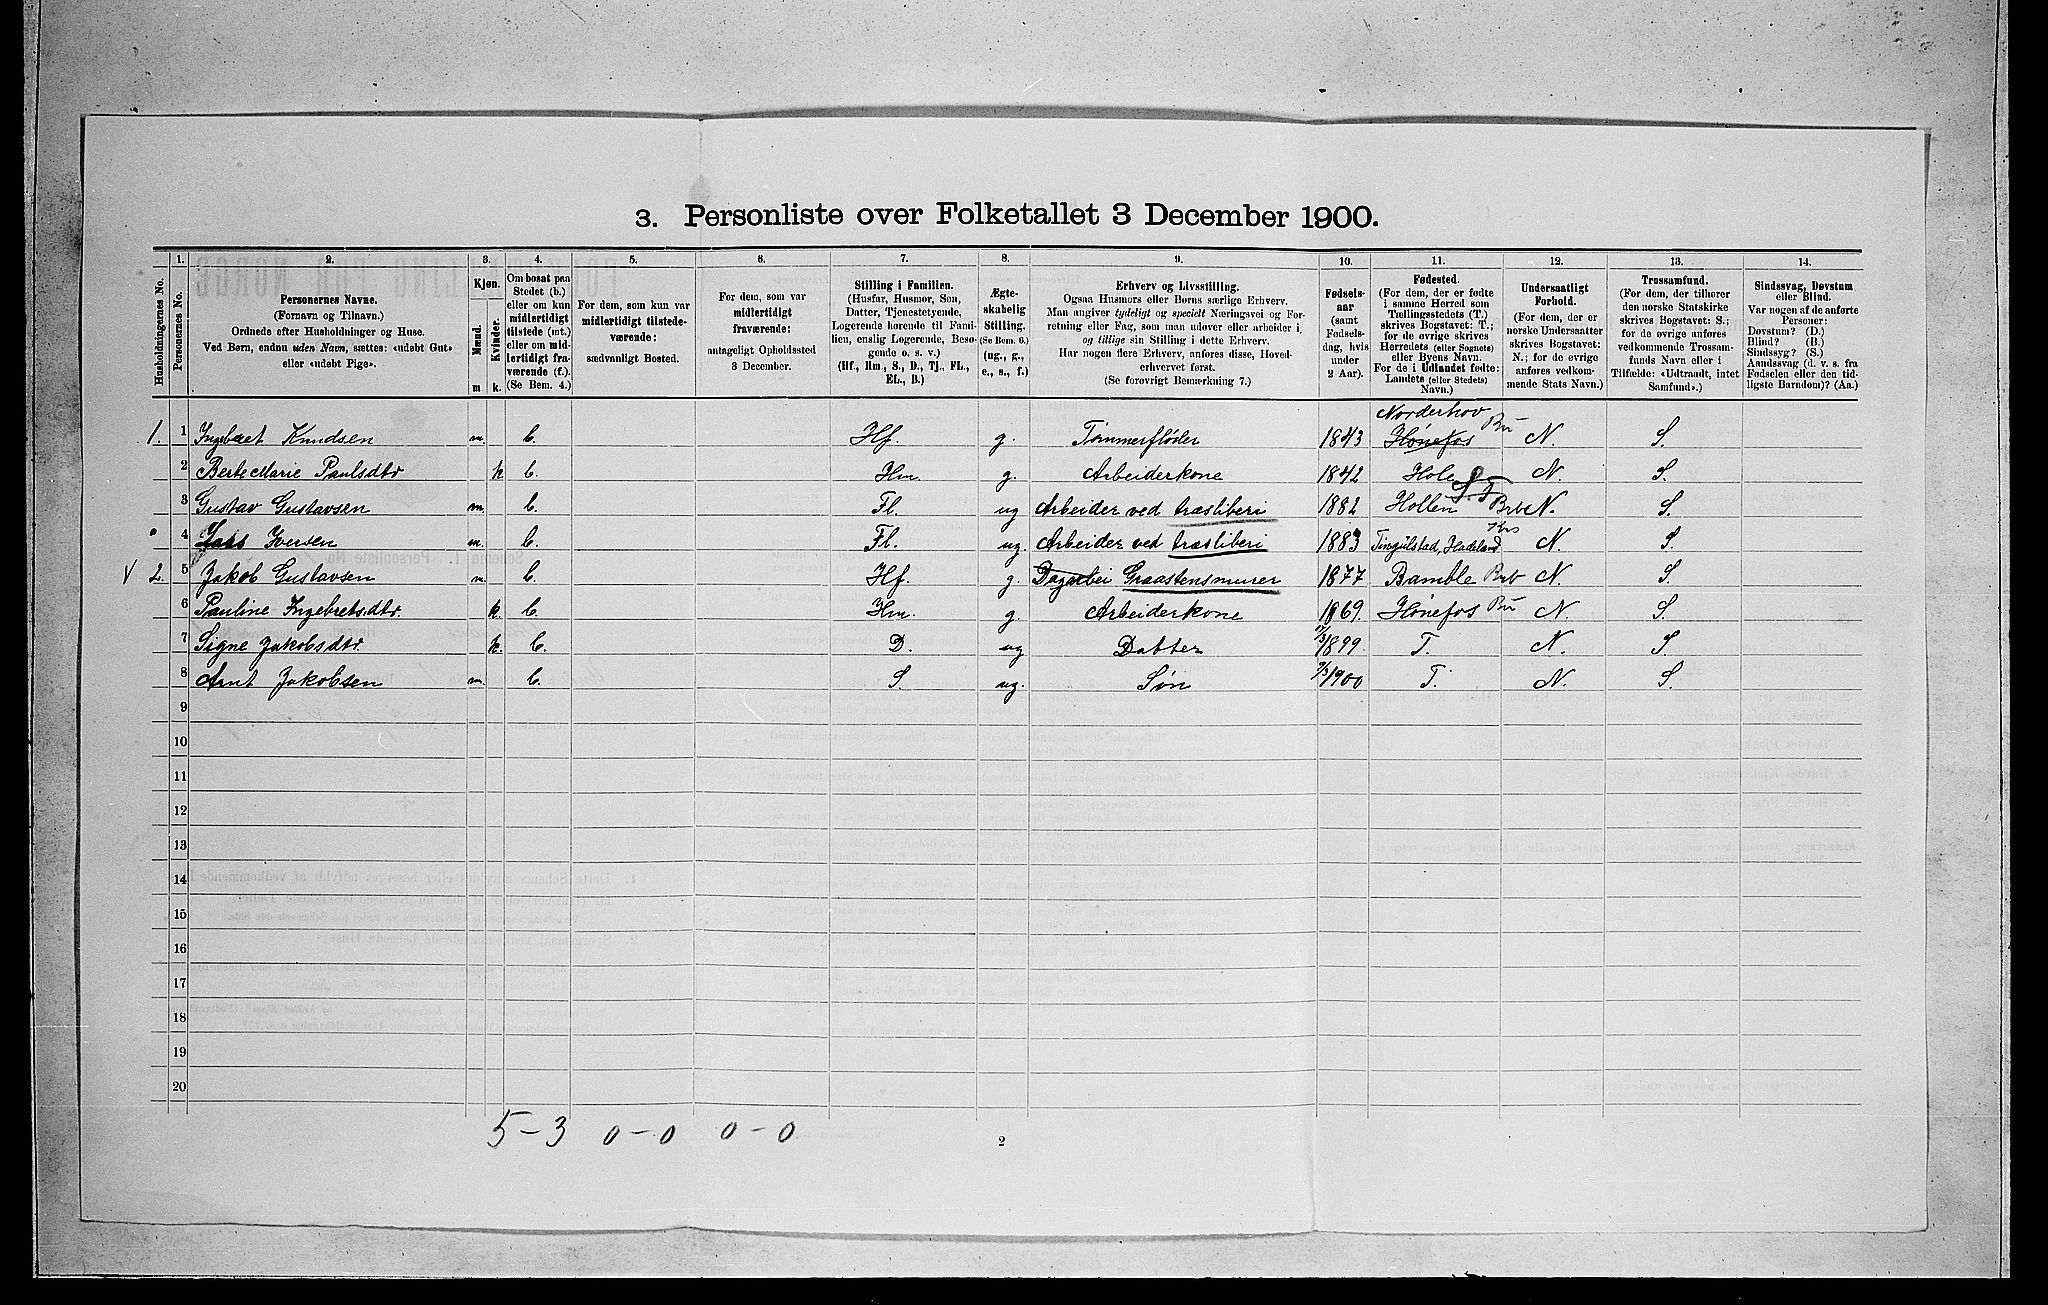 3. Personliste over Folketallet 3 December 1900.
1. 2. 3. 4. 5. 6. 7. 8. 9. 10. 11. 12. 13. 14.
Husholdningernes No.
Personernes No.
Personernes Navne.
(Fornavn og Tilnavn.)
Ordnede efter Husholdninger og Huse.
Ved Børn, endnu uden Navn, sættes: «udøbt Gut»
eller «udøbt Pige».
Kjøn.
Mænd. Kvinder.
m k.
Om bosat paa
Stedet (b.)
eller om kun
midlertidigt
tilstede (mt.)
eller om mid-
lertidigt fra-
værende (f.).
(Se Bem. 4.)
For dem, som kun var
midlertidigt tilstede-
værende:
sædvanligt Bosted.
For dem, som var
midlertidigt
fraværende:
antageligt Opholdssted
3 December.
Stilling i Familien.
(Husfar, Husmor, Søn,
Datter, Tjenestetyende,
Logerende hørende til Fami-
lien, enslig Logerende, Besø-
gende o. s. v.)
(Hf., Hm., S., D., Tj., FL.,
EL., B.)
Ægte-
skabelig
Stilling.
(Se Bem. 6.)
(ug., g.,
e., s., f.)
Erhverv og Livsstilling.
Ogsaa Husmors eller Børns særlige Erhverv.
Man angiver tydeligt og specielt Næringsvei og For-
retning eller Fag, som man udøver eller arbeider i,
og tillige sin Stilling i dette Erhverv.
Har nogen flere Erhverv, anføres disse, Hoved-
erhvervet først.
(Se forøvrigt Bemærkning 7.)
Fødsels-
aar
(samt
Fødsels-
dag, hvis
under
2 Aar).
Fødested.
(For dem, der er fødte
i samme Herred som
Tællingsstedets (T.)
skrives Bogstavet: T.;
for de øvrige skrives
Herredets (eller Sognets)
eller Byens Navn.
For de i Udlandet fødte:
Landets (eller Stedets)
Navn.)
Undersaatligt
Forhold.
(For dem, der er
norske Undersaatter
skrives Bogstavet:
N.; for de øvrige
anføres vedkom-
mende Stats Navn.)
Trossamfund.
(For dem, der tilhører
den norske Statskirke
skrives Bogstavet: S.;
for de øvrige anføres
vedkommende Trossam-
funds Navn eller i
Tilfælde: «Udtraadt, intet
Samfund».)
Sindssvag, Døvstum
eller Blind.
Var nogen af de anførte
Personer:
Døvstum? (D.)
Blind? (B.)
Sindssyg? (S.)
Aandssvag (d. v. s. fra
Fødselen eller den tid-
ligste Barndom)? (Aa.)
Norderhov
1. 1 Ingebret Knudsen m. b. Hf. g. Tømmerfløder 1843 Hønefos Bu N. S.
2 Berte Marie Paulsdtr k b. Hm. g. Arbeiderkone 1842 Hole N. S.
3 Gustav Gustavsen m. b. Fl. ug Arbeider ved træsliberi 1882 Hollen Brb N. S.
4 Lars Iversen m. b. Fl. ug. Arbeider ved træsliberi 1883 Tingelstad, Hadeland N. S.
V 2. 5 Jakob Gustavsen m. b. Hf. g. Dagarbei Graastensmurer 1877 Bamble Brb N. S.
6 Pauline Ingebretsdtr. k. b. Hm. g. Arbeiderkone 1869. Hønefos Bu N. S.
7 Signe Jakobsdtr. k. b. D. ug Datter 17/3 1899 T. N. S.
8 Arnt Jakobsen m. b. S. ug. Søn 1900 T. N. S.
9
10
11
12
13
14
15
16
17
18
19
20
5-3 0-0 0-0
2